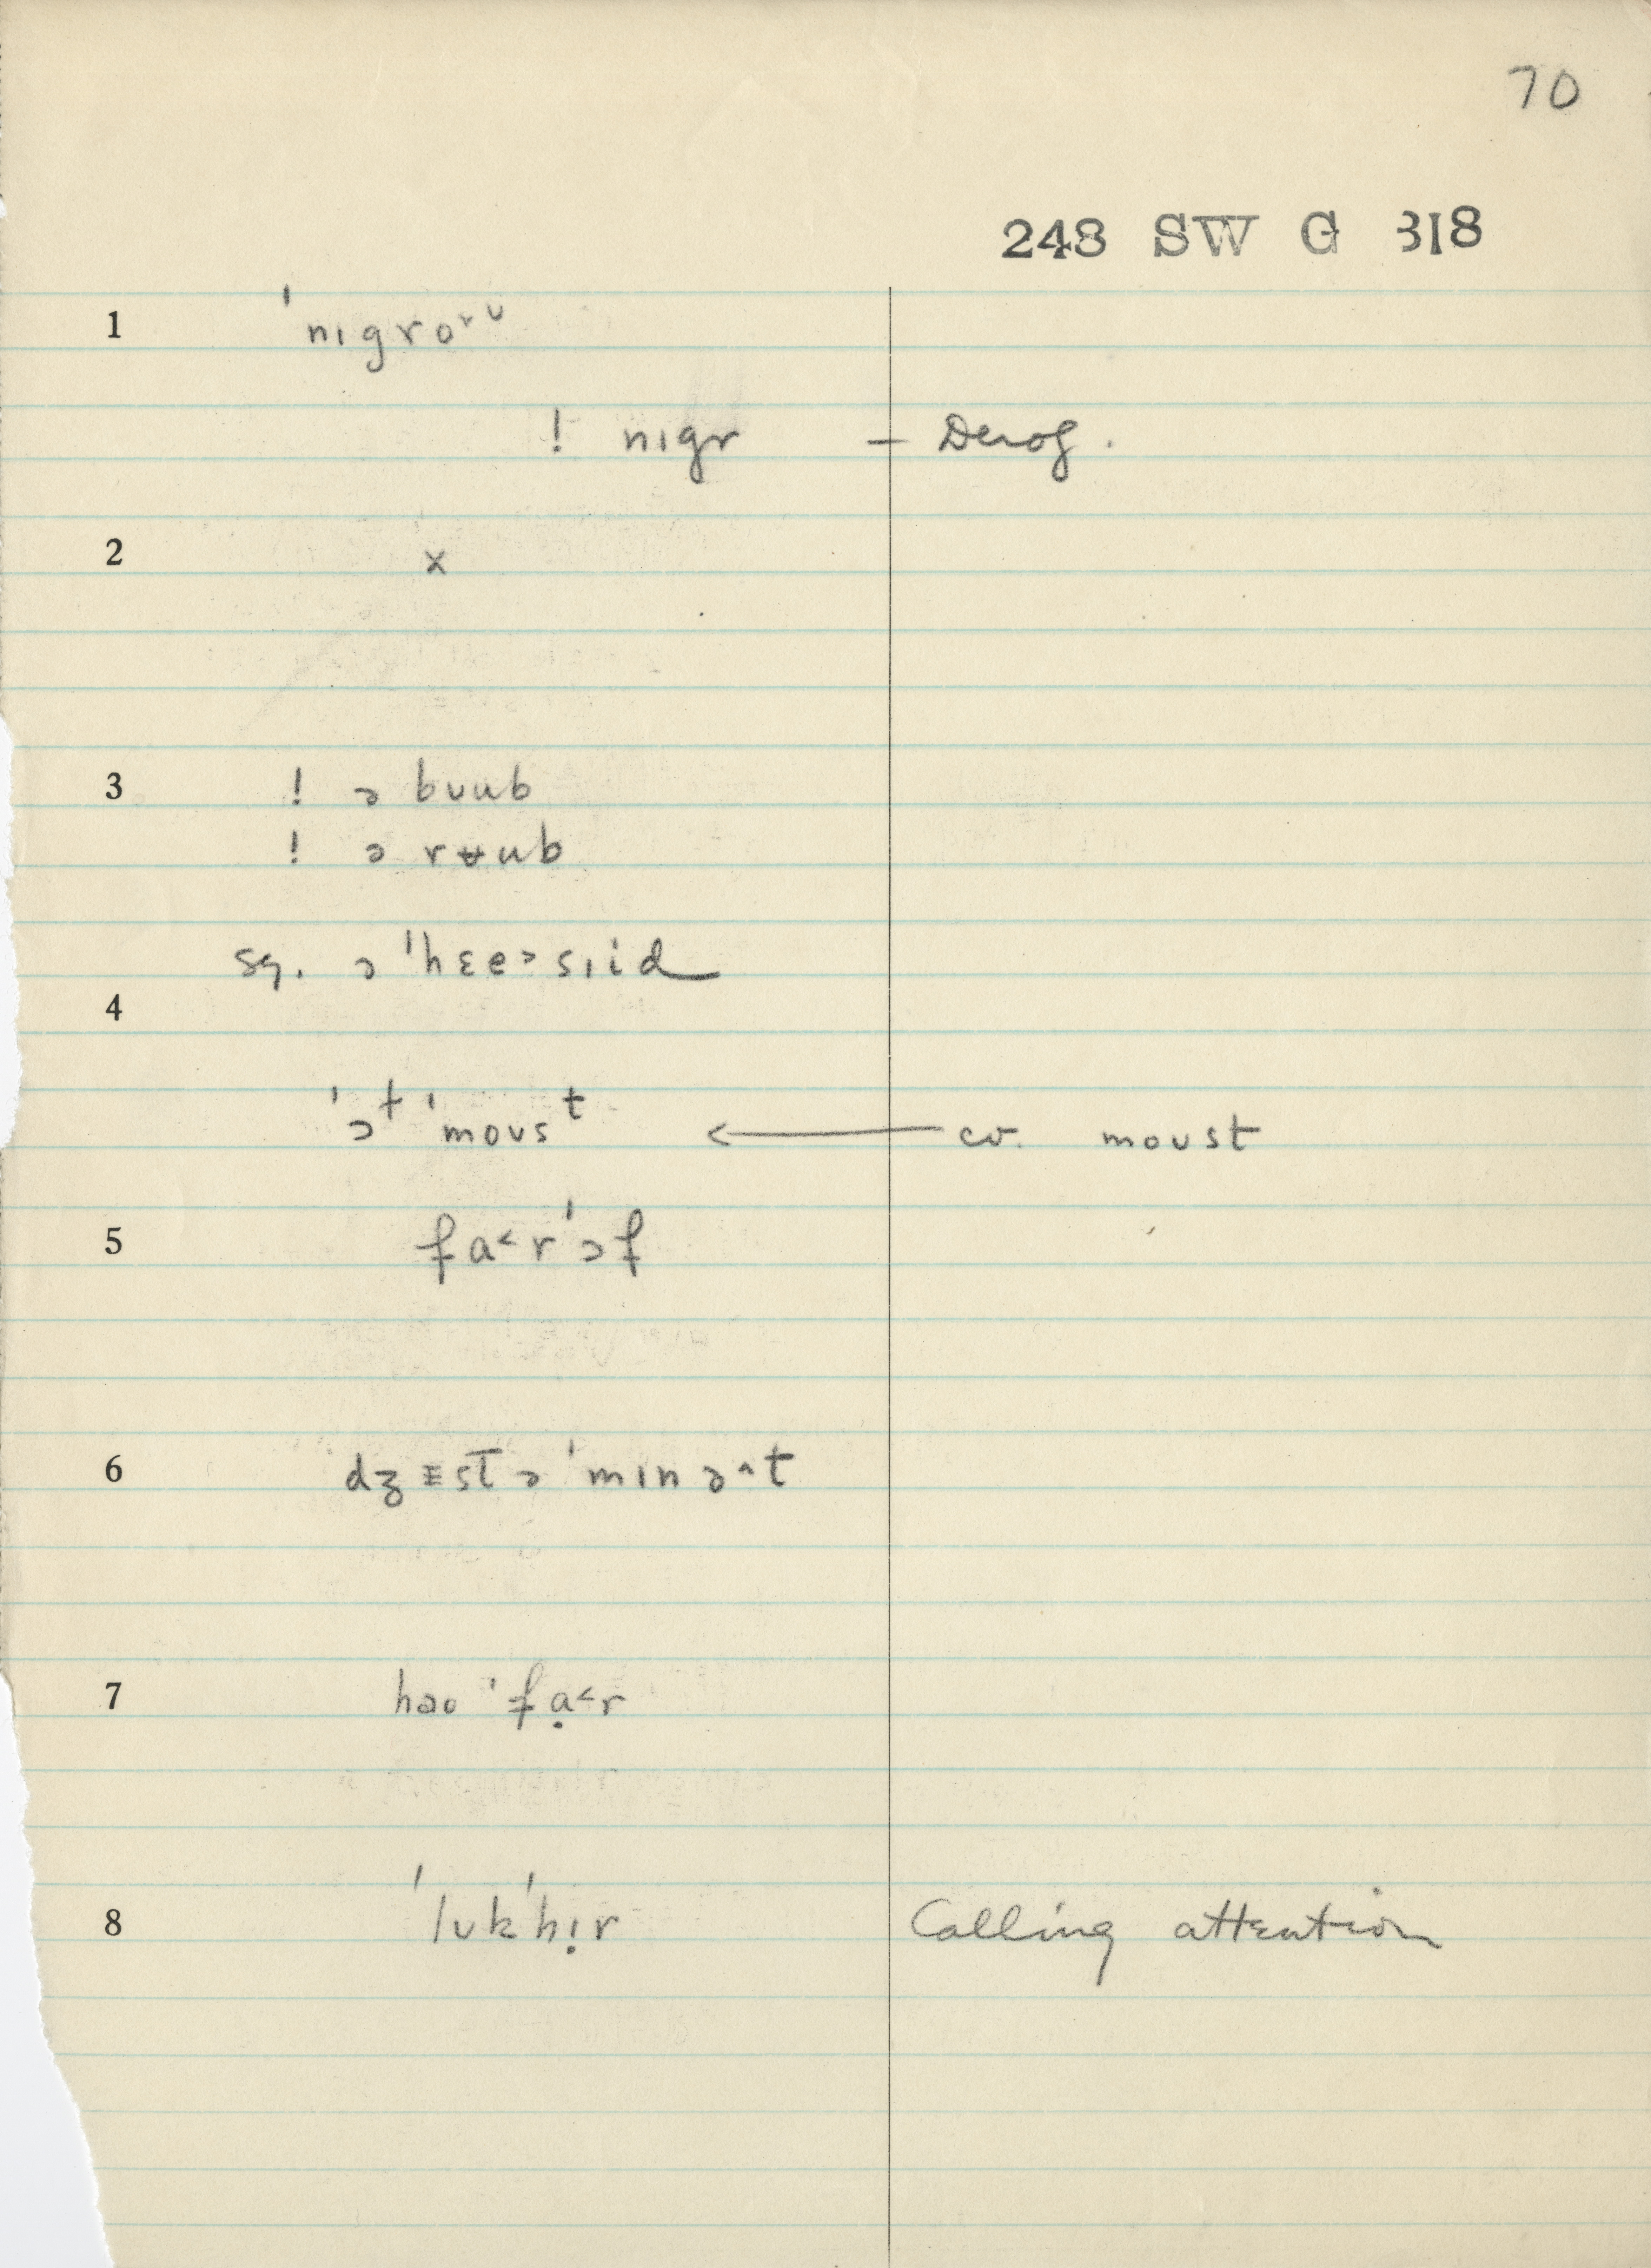 70
248 SW G 318
1 ˈnɪgro˕ᶸ
! nɪgr — Derog.
2 x
3 ! ə bʊub
! ə rʉub
sq. ə ˈhɛe˃sɪid
4
ˈəᵗ ˈmoʊsᵗ ← cv. moʊst
5 fa˂rˈəf
6 dʒɛst ə ˈmɪnə˄t
7 həo ˈfạ˂r
8 ˈlʊkˈhɪ̣r Calling attention